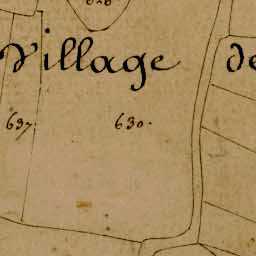 Village de
637. 630.